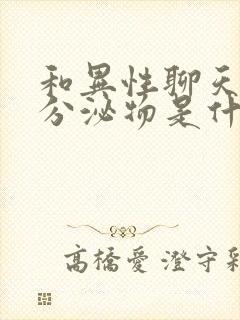 和異性聊天
分泌物是什
高橋愛 澄守彩